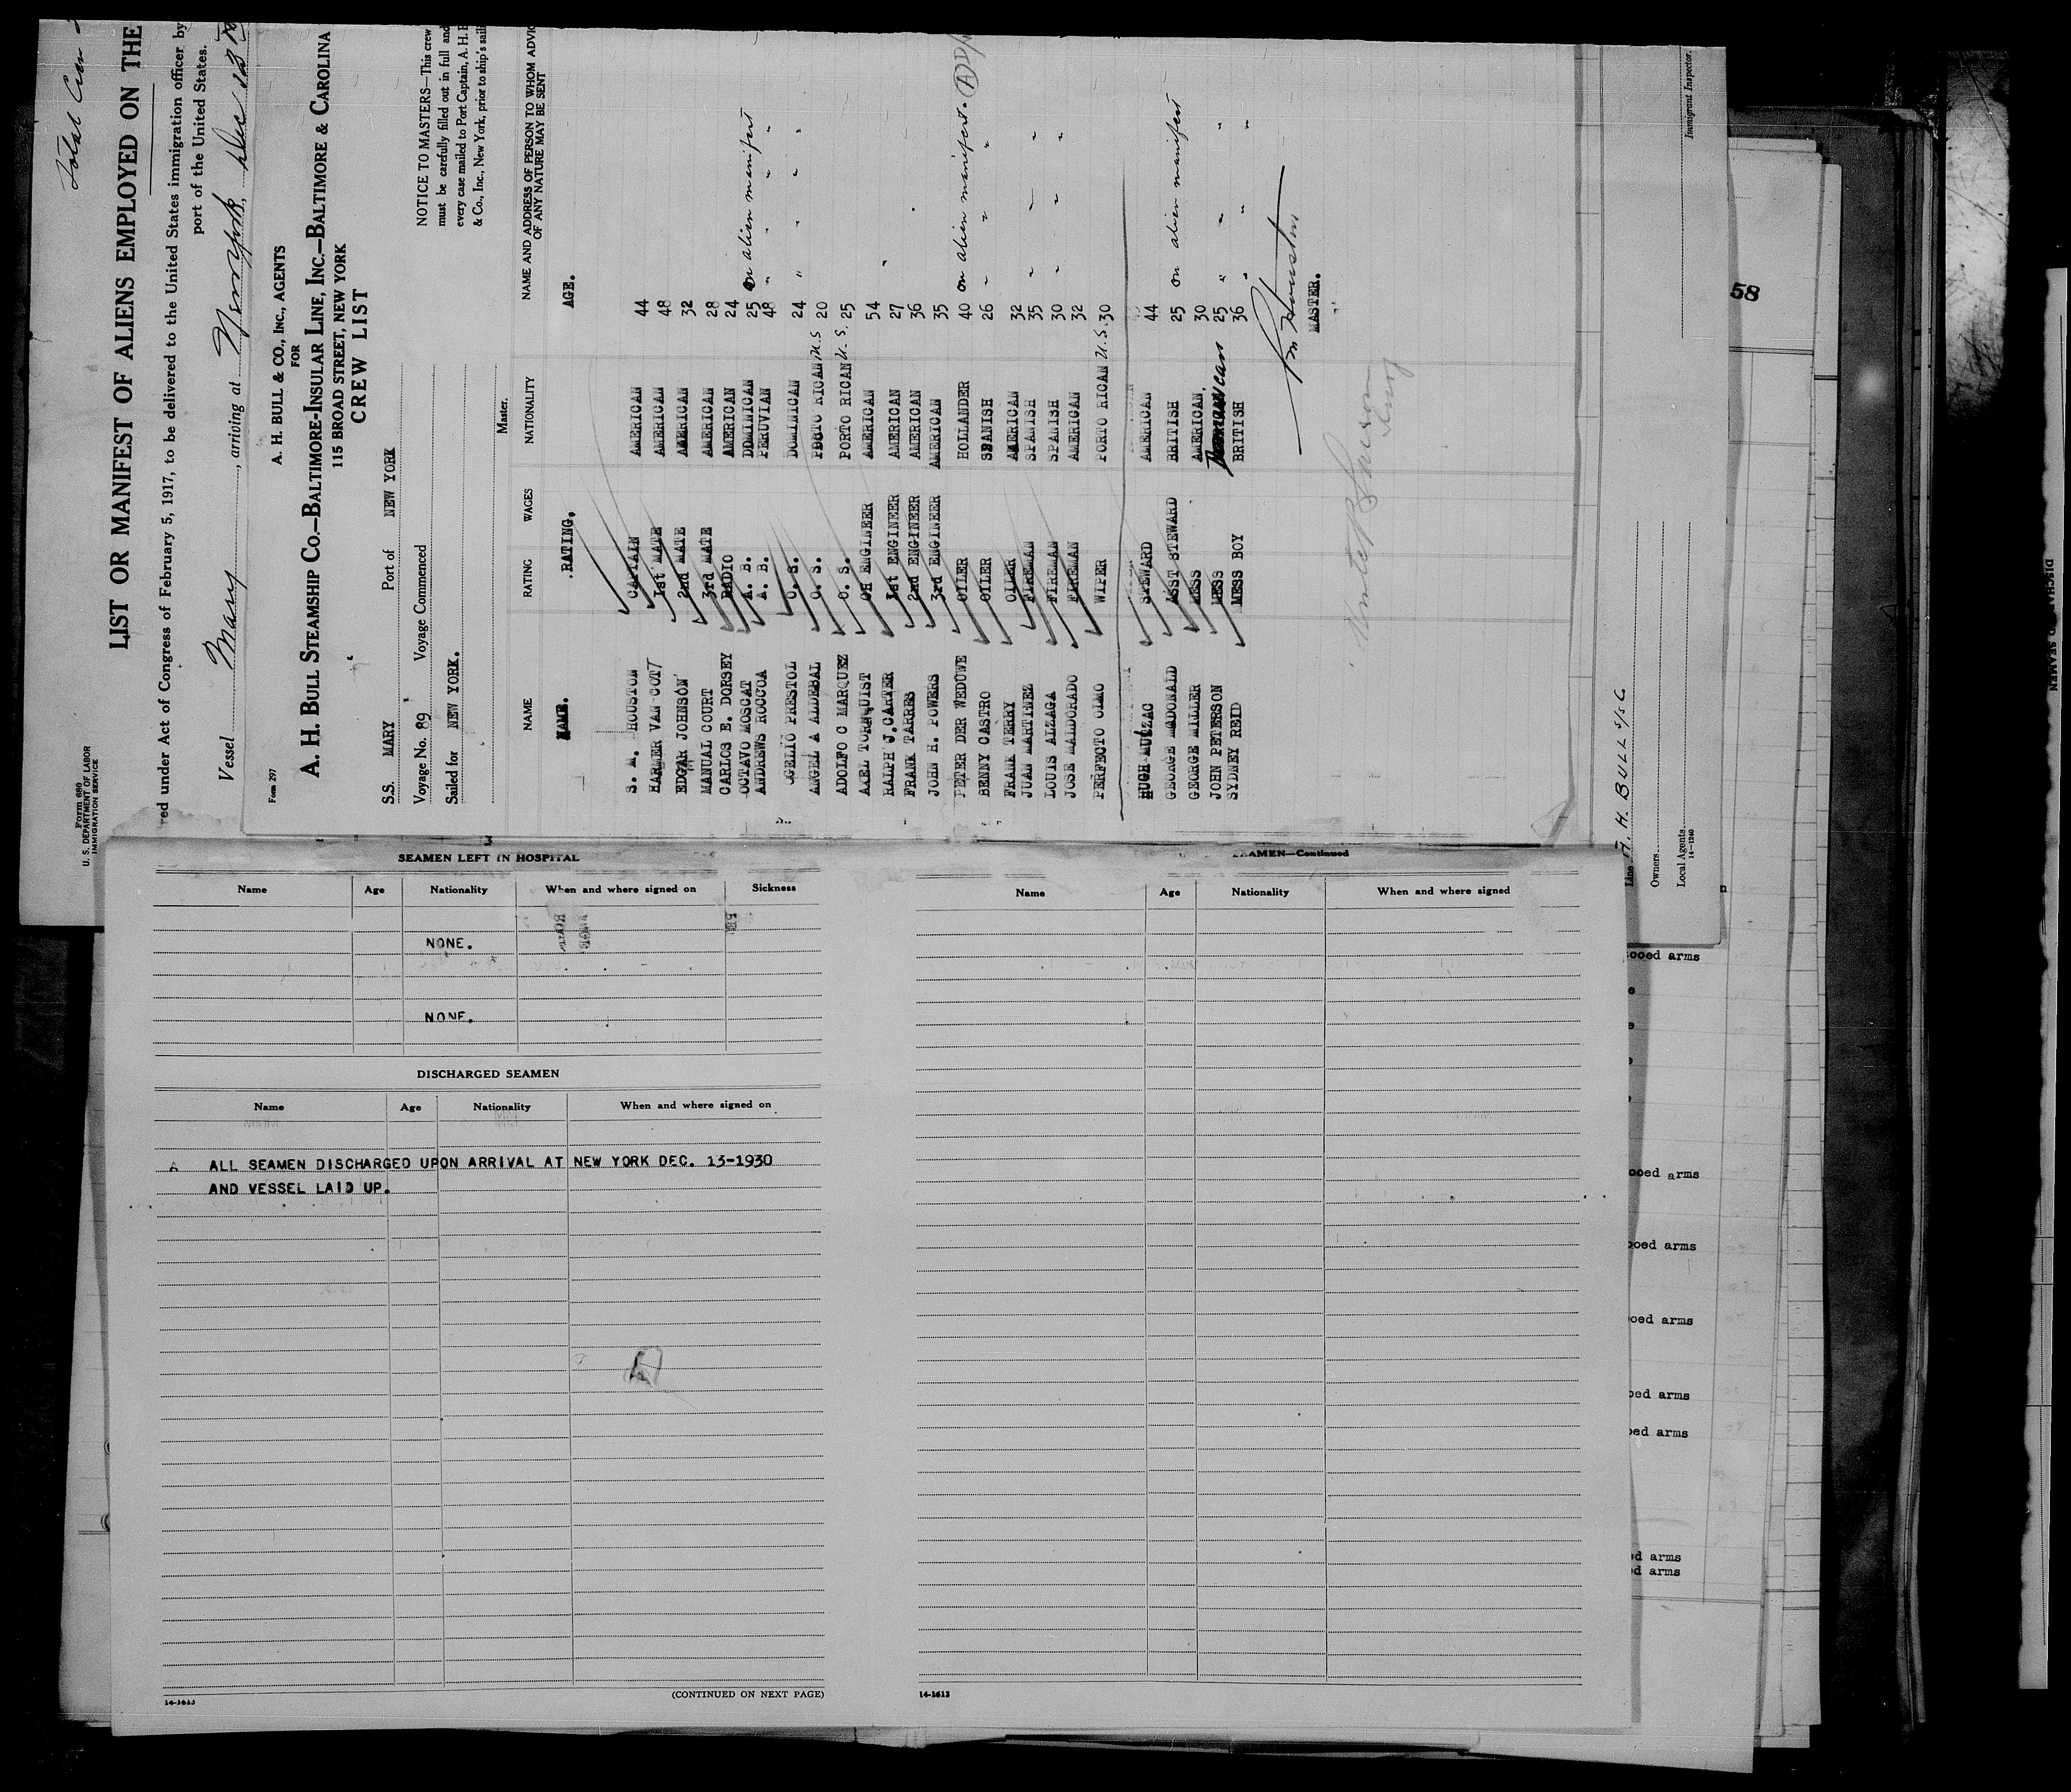 Total Crew
LIST OR MANIFEST OF ALIENS EMPLOYED ON THE
red under Act of Congress of February 5, 1917, to be delivered to the United States immigration officer by
port of the United States.
Vessel Mary, arriving at New York, Dec 13
Form 680
U. S. DEPARTMENT OF LABOR
IMMIGRATION SERVICE
Form 297
A. H. BULL & CO., INC., AGENTS
FOR
A. H. BULL STEAMSHIP CO.—BALTIMORE-INSULAR LINE, INC.—BALTIMORE & CAROLINA
115 BROAD STREET, NEW YORK
CREW LIST
S.S. MARY Port of NEW YORK
Voyage No. 89 Voyage Commenced
Sailed for NEW YORK.
Master.
NOTICE TO MASTERS—This crew
must be carefully filled out in full and
every case mailed to Port Captain, A. H. B
& Co., Inc., New York, prior to ship's sail
NAME RATING WAGES NATIONALITY NAME AND ADDRESS OF PERSON TO WHOM ADVIC
OF ANY NATURE MAY BE SENT
NAME. .RATING. AGE.
S. M. HOUSTON CAPTAIN AMERICAN 44
HARMER VAN COTT 1st MATE AMERICAN 48
EDGAR JOHNSON 2nd MATE AMERICAN 32
MANUAL COURT 3rd MATE AMERICAN 28
CARLOS E. DORSEY RADIO AMERICAN 24
OCTAVO MOSCAT A. B. DOMINICAN 25 on alien manifest
ANDREWS ROCCOA A. B. PERUVIAN 48 " " " "
OGELIO PRESTOL O. S. DOMINICAN 24 " " " "
ANGEL A ALDEBAL O. S. PORTO RICAN U.S 20
ADOLFO C MARQUEZ O. S. PORTO RICAN U.S. 25
AXEL TORNQUIST CH ENGINEER AMERICAN 54
RALPH J. CARTER 1st ENGINEER AMERICAN 27
FRANK TARRES 2nd ENGINEER AMERICAN 36
JOHN H. POWERS 3rd ENGINEER AMERICAN 35
PETER DER WEDUWE OILER HOLLANDER 40 on alien manifest. (A)
BENNY CASTRO OILER SPANISH 26 " " "
FRANK TERRY OILER AMERICAN 32
JUAN MARTINEZ FIREMAN SPANISH 35 " " "
LOUIS ALZAGA FIREMAN SPANISH 30 " " "
JOSE MALDORADO FIREMAN AMERICAN 32
PERFECTO OLMO WIPER PORTO RICAN U.S. 30
HUGH MULZAC STEWARD AMERICAN 44
GEORGE MCDONALD ASST STEWARD BRITISH 25 on alien manifest
GEORGE MILLER MESS AMERICAN. 30
JOHN PETERSON MESS 25 " " "
SYDNEY REID MESS BOY BRITISH 36 " " "
S M Houston
MASTER.
Line A. H. BULL S/S C.
Owners
Local Agents
14—1240
Immigrant Inspector.
58
SEAMEN LEFT IN HOSPITAL
Name Age Nationality When and where signed on Sickness
NONE.
NONE.
DISCHARGED SEAMEN
Name Age Nationality When and where signed on
ALL SEAMEN DISCHARGED UPON ARRIVAL AT NEW YORK DEC. 13-1930
AND VESSEL LAID UP.
14-1613
(CONTINUED ON NEXT PAGE)
SEAMEN—Continued
Name Age Nationality When and where signed
14-1613
ooed arms
ooed arms
ooed arms
oed arms
oed arms
oed arms
d arms
d arms
DISCHARGED SEAMEN